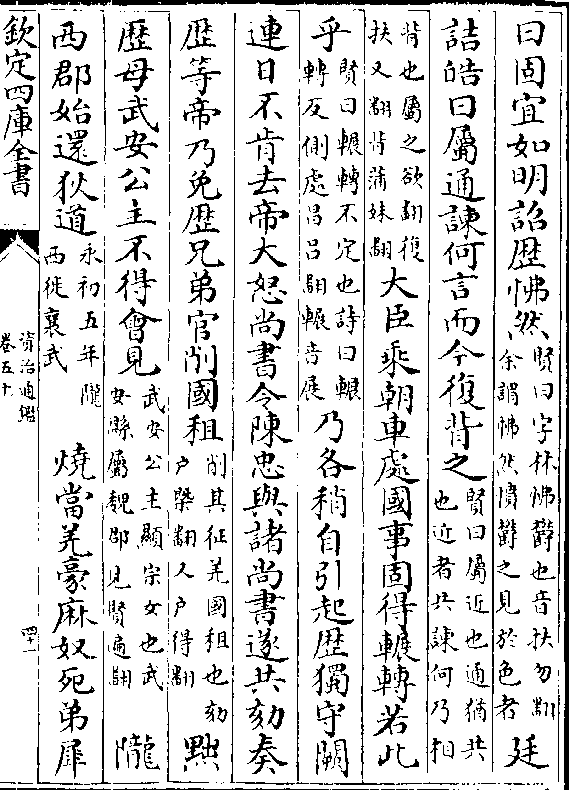 曰固宜如明詔歴怫然賢曰字林怫欝也音扶勿翻余謂怫然憤欝之見於色者廷
詰皓曰屬通諫何言而今復背之賢曰屬近也通猶共也近者共諫何乃相
背也屬之欲翻復扶又翻背蒲妹翻大臣乘朝車處國事固得輾轉若此
乎賢曰輾轉不定也詩曰輾轉反側處昌呂翻輾音展乃各稍自引起歴獨守闕
連日不肯去帝大怒尚書令陳忠與諸尚書遂共劾奏
歴等帝乃免歴兄弟官削國租削其征羌國租也劾戶槩翻又戶得翻黜
歴母武安公主不得會見武安公主顯宗女也武安縣屬魏郡見賢遍翻隴
西郡始還狄道永初五年隴西徙襄武燒當羌豪麻奴死弟犀
欽定四庫全書
資治通鑑
卷五十